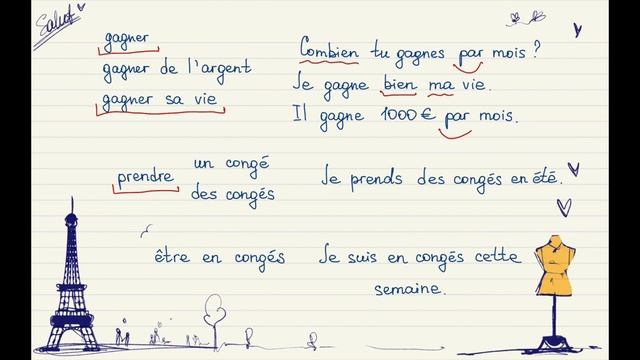 Salut
gagner
Combien tu gagnes par mois ?
gagner de l'argent
Je gagne bien ma vie.
gagner sa vie
Il gagne 1000 € par mois.
prendre
un congé
des congés
Je prends des congés en été.
être en congés
Je suis en congés cette
semaine.